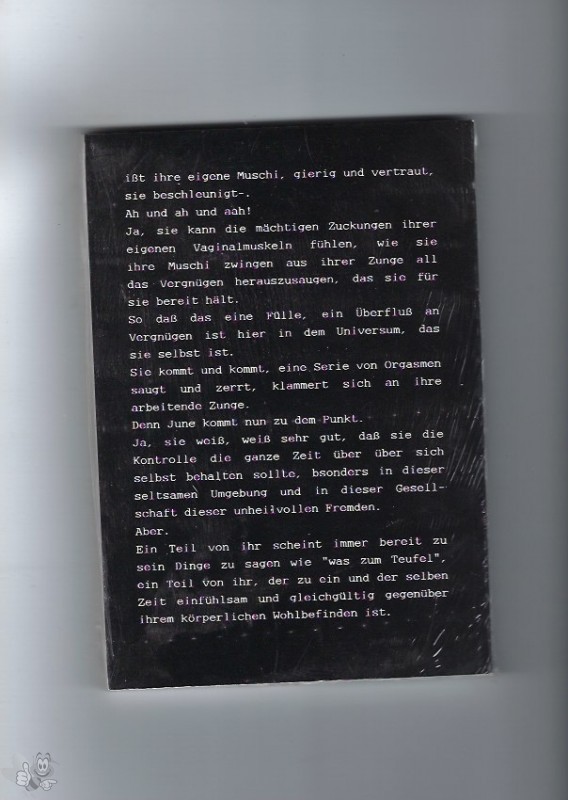 ißt ihre eigene Muschi, gierig und vertraut,
sie beschleunigt-.
Ah und ah und aah!
Ja, sie kann die mächtigen Zuckungen ihrer
eigenen Vaginalmuskeln fühlen, wie sie
ihre Muschi zwingen aus ihrer Zunge all
das Vergnügen herauszusaugen, das sie für
sie bereit hält.
So daß das eine Fülle, ein Überfluß an
Vergnügen ist hier in dem Universum, das
sie selbst ist.
Sie kommt und kommt, eine Serie von Orgasmen
saugt und zerrt, klammert sich an ihre
arbeitende Zunge.
Denn June kommt nun zu dem Punkt.
Ja, sie weiß, weiß sehr gut, daß sie die
Kontrolle die ganze Zeit über über sich
selbst behalten sollte, bsonders in dieser
seltsamen Umgebung und in dieser Gesell-
schaft dieser unheilvollen Fremden.
Aber.
Ein Teil von ihr scheint immer bereit zu
sein Dinge zu sagen wie "was zum Teufel",
ein Teil von ihr, der zu ein und der selben
Zeit einfühlsam und gleichgültig gegenüber
ihrem körperlichen Wohlbefinden ist.